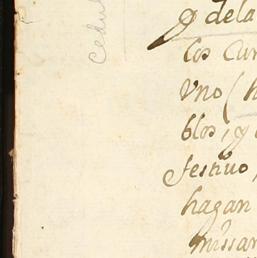 y dela
los Cur
Vno (h
blos, y
festiuo,
hagan
missar